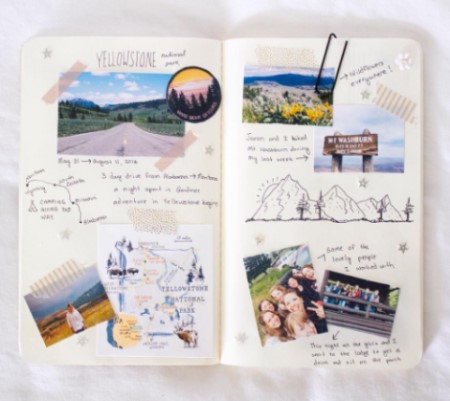 YELLOWSTONE national park
May 31 → August 11, 2016
3 day drive from Alabama → Montana
a night spent in Gardiner
adventure in Yellowstone begins
& CAMPING
ALONG THE
WAY
YELLOWSTONE
NATIONAL
PARK
→ Wildflowers
everywhere!
Jason and I hiked
Mt. Washburn during
my last week →
MT WASHBURN
Some of the
lovely people
I worked with
This night all the girls and I
went to the lodge to get a
drink and sit on the porch